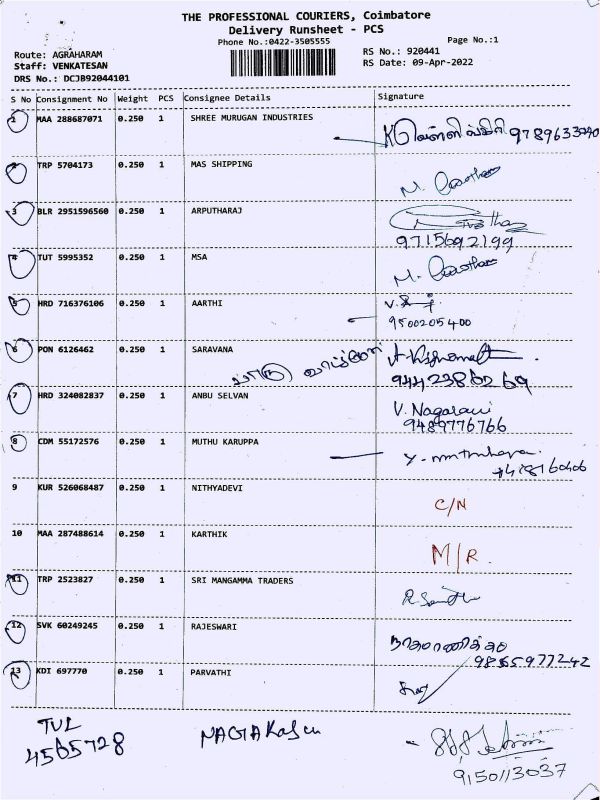 THE PROFESSIONAL COURIERS, Coimbatore
Delivery Runsheet - PCS
Phone No.:0422-3505555
Page No.:1
Route: AGRAHARAM
RS No.: 920441
Staff: VENKATESAN
RS Date: 09-Apr-2022
DRS No.: DCJB92044101
S No Consignment No Weight PCS Consignee Details Signature
1 MAA 288687071 0.250 1 SHREE MURUGAN INDUSTRIES
2 TRP 5704173 0.250 1 MAS SHIPPING M.
3 BLR 2951596560 0.250 1 ARPUTHARAJ
9715692199
4 TUT 5995352 0.250 1 MSA M.
5 HRD 716376106 0.250 1 AARTHI
9500205400
6 PON 6126462 0.250 1 SARAVANA
9442386269
7 HRD 324082837 0.250 1 ANBU SELVAN V. Nagarani
9489776766
8 CDM 55172576 0.250 1 MUTHU KARUPPA
9 KUR 526068487 0.250 1 NITHYADEVI C/N
10 MAA 287488614 0.250 1 KARTHIK M/R.
11 TRP 2523827 0.250 1 SRI MANGAMMA TRADERS
12 SVK 60249245 0.250 1 RAJESWARI
13 KDI 697770 0.250 1 PARVATHI
TUL
4565728
9150113037